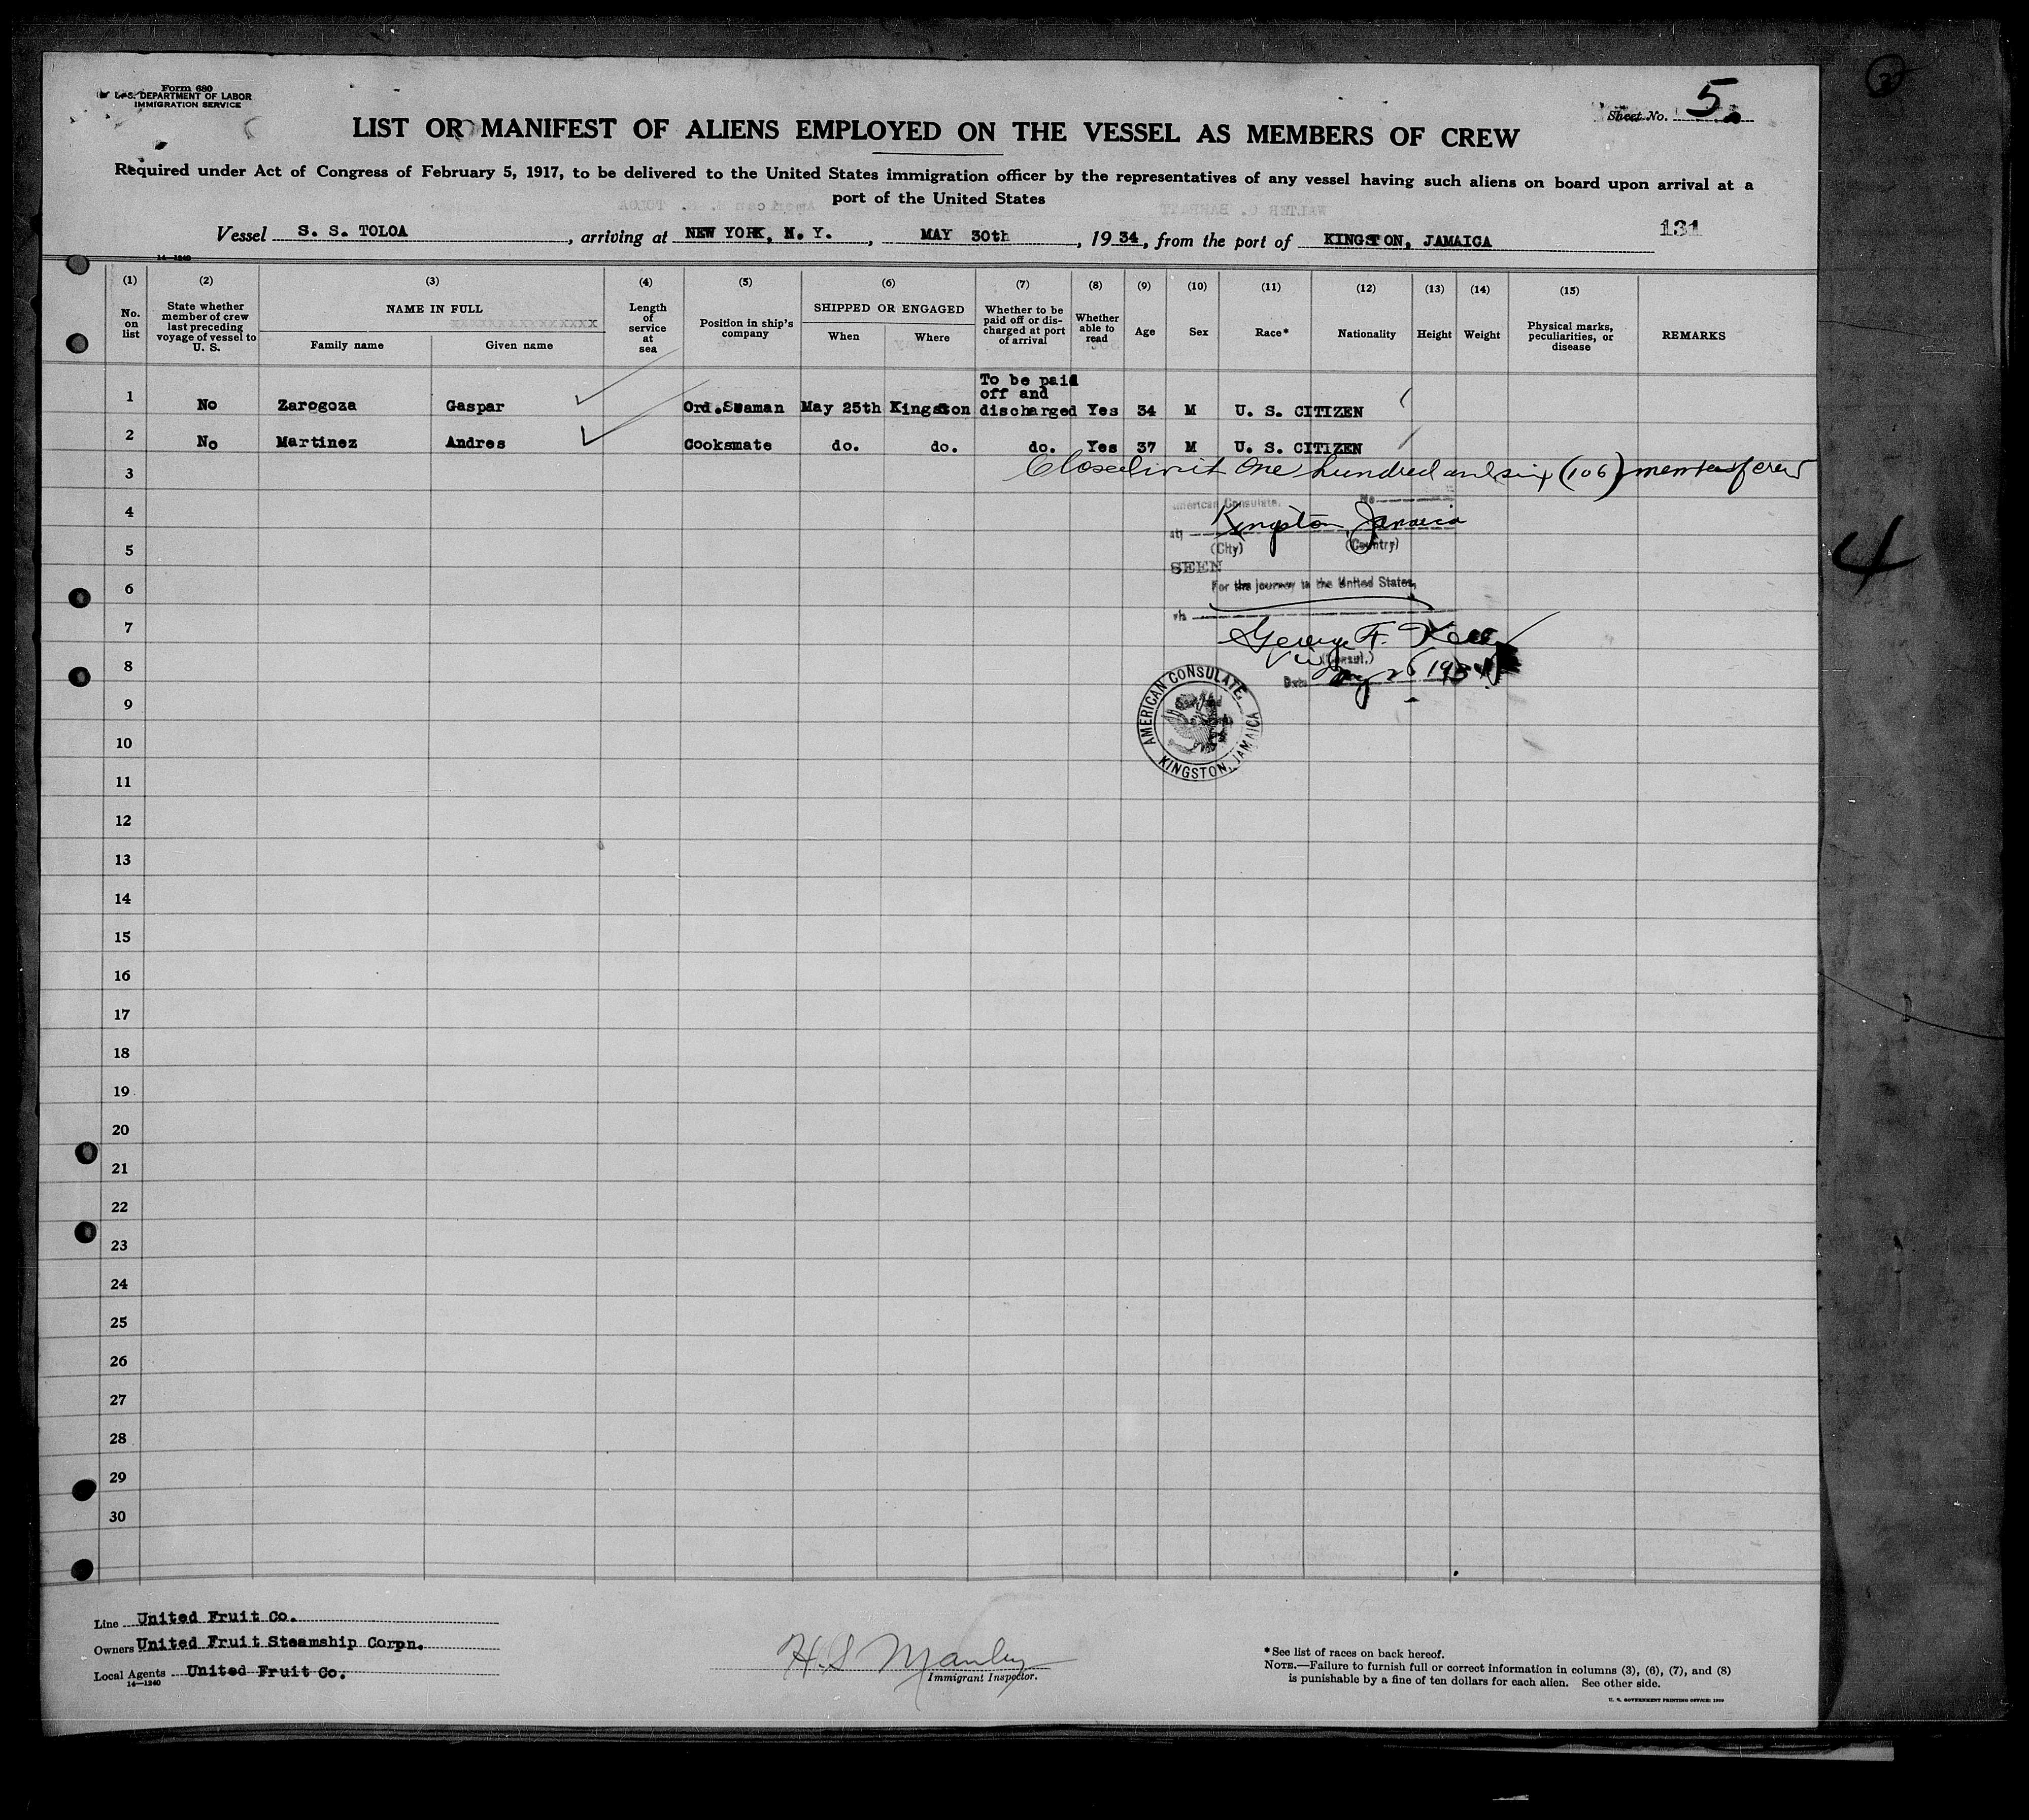 Form 680
U. S. DEPARTMENT OF LABOR
IMMIGRATION SERVICE
Sheet No. 5
LIST OR MANIFEST OF ALIENS EMPLOYED ON THE VESSEL AS MEMBERS OF CREW
Required under Act of Congress of February 5, 1917, to be delivered to the United States immigration officer by the representatives of any vessel having such aliens on board upon arrival at a
port of the United States
Vessel S. S. TOLOA, arriving at NEW YORK, N. Y., MAY 30th, 1934, from the port of KINGSTON, JAMAICA
131
14—1240
(1) (2) (3) (4) (5) (6) (7) (8) (9) (10) (11) (12) (13) (14) (15)
No. on list
State whether member of crew last preceding voyage of vessel to U. S.
NAME IN FULL
Family name
Given name
Length of service at sea
Position in ship's company
SHIPPED OR ENGAGED
When
Where
Whether to be paid off or discharged at port of arrival
Whether able to read
Age
Sex
Race*
Nationality
Height
Weight
Physical marks, peculiarities, or disease
REMARKS
To be paid
off and
1 No Zarogoza Gaspar Ord.Seaman May 25th Kingston discharged Yes 34 M U. S. CITIZEN
2 No Martinez Andres Cooksmate do. do. do. Yes 37 M U. S. CITIZEN
3 One hundred and six (106) members of crew
4 American Consulate. No
at Kingston Jamaica
5 (City) (Country)
SEEN
6 For the journey to the United States,
via
7 George F.
8 (Consul.)
Date May 26 1934
AMERICAN CONSULATE, KINGSTON, JAMAICA
9
10
11
12
13
14
15
16
17
18
19
20
21
22
23
24
25
26
27
28
29
30
4
2
Line United Fruit Co.
Owners United Fruit Steamship Corpn.
Local Agents United Fruit Co.
14—1240
H. S Manley
Immigrant Inspector.
* See list of races on back hereof.
NOTE.—Failure to furnish full or correct information in columns (3), (6), (7), and (8)
is punishable by a fine of ten dollars for each alien. See other side.